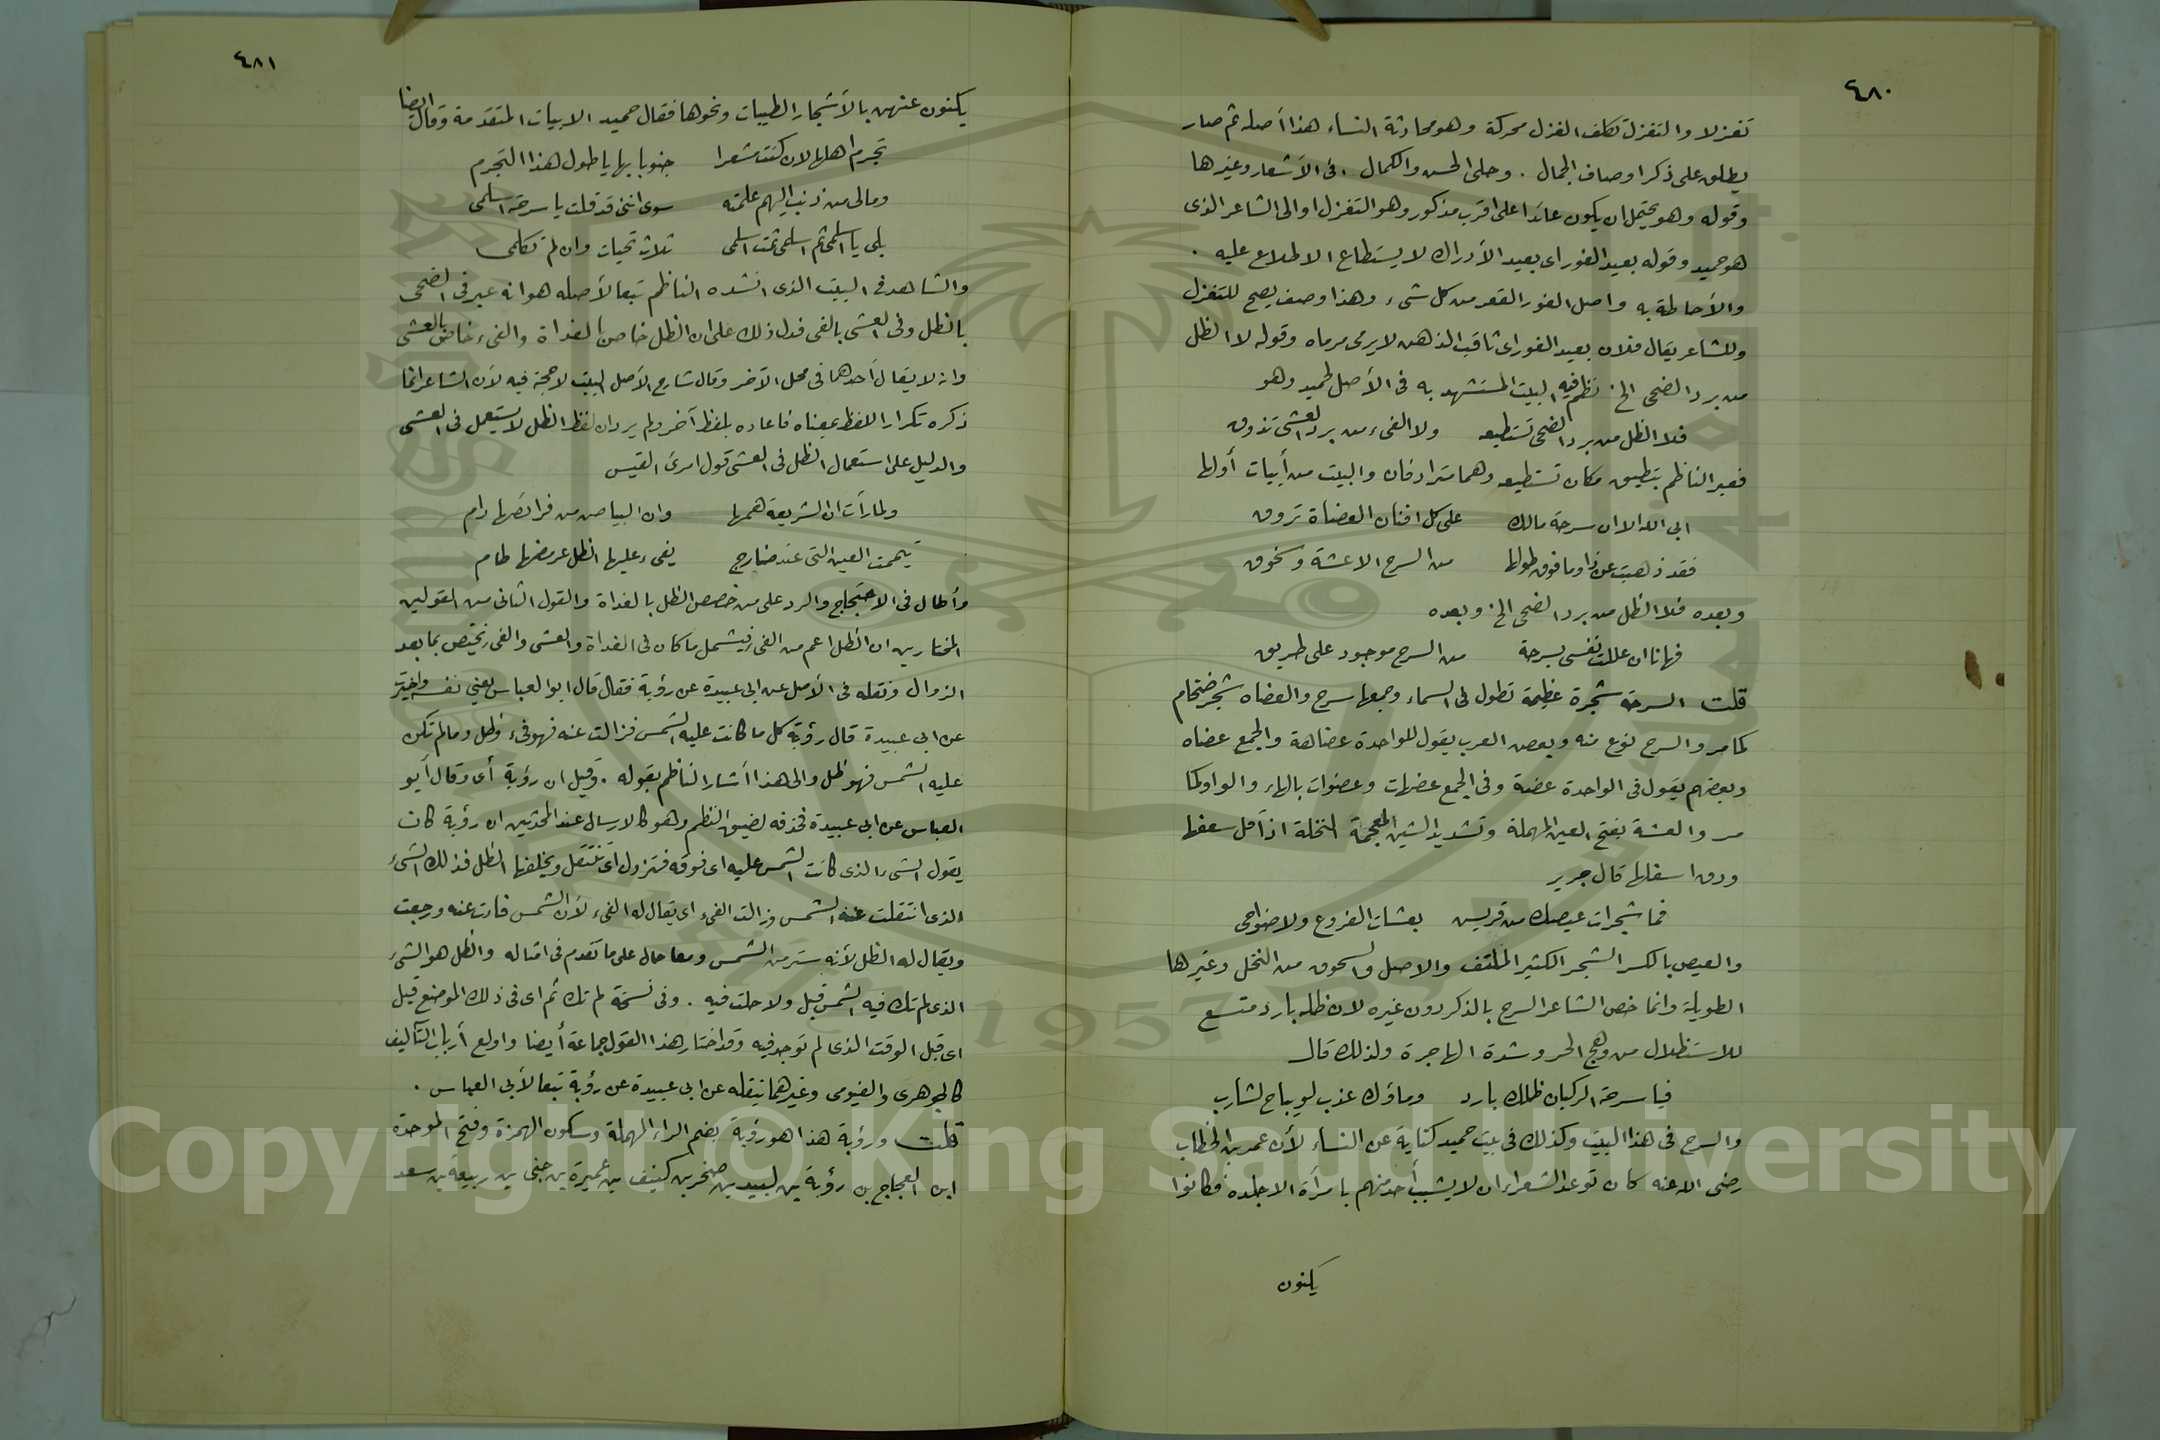 ٤٨٠
تغزلا والتغزل تكلف الغزل محركة وهو محادثة النساء هذا أصله ثم صار
يطلق على ذكر اوصاف الجمال . وحلى الحسن والكمال . فى الأشعار وغيرها
وقوله وهو يحتمل ان يكون عائدا على اقرب مذكور وهو التغزل او الى الشاعر الذى
هو حميد وقوله بعيد الغور اى بعيد الأدراك لا يستطاع الاطلاع عليه .
والأحاطة به واصل الغور القعر من كل شىء وهذا وصف يصح للتغزل
وللشاعر يقال فلان بعيد الغور اى ثاقب الذهن لا يرمى مرماه وقوله لا الظل
من برد الضحى الخ نظم فيه البيت المستشهد به فى الأصل لحميد وهو
فلا الظل من برد الضحى تستطيعه ولا الفىء من برد العشى تذوق
فعبر الناظم بتطيق مكان تستطيعه وهما مترادفان والبيت من أبيات أولها
ابى الله الا ان سرحة مالك على كل افنان العضاة تروق
فقد ذهبت عرضا وما فوق طولها من السرح الا عشة وسحوق
وبعده فلا الظل من برد الضحى الخ وبعده
فهل انا ان عللت نفسى بسرحة من السرح موجود على طريق
قلت السرحة شجرة عظيمة تطول فى السماء وجمعها سرح والعضاه شجر ضخام
كما مر والسرح نوع منه وبعض العرب يقول للواحدة عضاهة والجمع عضاه
وبعضهم يقول فى الواحدة عضة وفى الجمع عضهات وعضوات بالهاء والواو كما
مر والعشة بفتح العين المهملة وتشديد الشين المعجمة النخلة اذا قل سعفها
ودق اسفلها قال جرير
فما شجرات عيصك من قريس بعشات الفروع ولا ضواحى
والعيص بالكسر الشجر الكثير الملتف والاصل والسحوق من النخل وغيرها
الطويلة وانما خص الشاعر السرح بالذكر دون غيره لان ظله بارد متسع
للاستظلال من وهج الحر وشدة الهاجرة ولذلك قال
فيا سرحة الركبان ظلك بارد وماؤك عذب لو يباح لشارب
والسرح فى هذا البيت وكذلك فى بيت حميد كناية عن النساء لأن عمر بن الخطاب
رضى الله عنه كان توعد الشعراء ان لا يشبب أحد منهم بامرأة الا جلده فكانوا
يكنون
٤٨١
يكنون عنهن بالأشجار الطيبات ونحوها فقال حميد الابيات المتقدمة وقال ايضا
تجرم اهلها لان كنت مشعرا جنوبا بها يا طول هذا التجرم
ومالى من ذنب اليهم علمته سوى اننى قد قلت يا سرحة اسلمى
بلى يا اسلمى ثم اسلمى ثمت اسلمى ثلاث تحيات وان لم تكلمى
والشاهد فى البيت الذى انشده الناظم تبعا لأصله هو انه عبر فى الضحى
بالظل وفى العشى بالفى فدل ذلك على ان الظل خاص بالغداة والفىء خاص بالعشى
وانه لا يقال أحدهما فى محل الآخر وقال شارح الأصل البيت لا حجة فيه لأن الشاعر انما
ذكره تكرارا للفظ بمعناه فاعاده بلفظ آخر ولم يرد ان لفظ الظل لا يستعمل فى العشى
والدليل على استعمال الظل فى العشى قول امرئ القيس
ولما رأت ان الشريعة همها وان البياض من فرائصها دام
تيممت العين التى عند ضارج يفىء عليها الظل عرمضها طام
وأطال فى الاحتجاج والرد على من خصص الظل بالغداة والقول الثانى من القولين
المختارين ان الظل اعم من الفى فيشمل ما كان فى الغداة والعشى والفى يختص بما بعد
الزوال ونقله فى الأصل عن ابى عبيدة عن رؤبة فقال قال ابو العباس يعني نفسه واخبرت
عن ابى عبيدة قال رؤبة كل ما كانت عليه الشمس فزالت عنه فهو فىء وظل وما لم تكن
عليه الشمس فهو ظل والى هذا أشار الناظم بقوله . وقيل ان رؤبة أى وقال أبو
العباس عن ابى عبيدة فحذفه لضيق النظم وهو كالارسال عند المحدثين ان رؤبة كان
يقول الشىء الذى كانت الشمس عليه اى فوقه فتزول اى تنتقل ويخلفها الظل فذلك الشىء
الذى انتقلت عنه الشمس وزالت الفىء اى يقال له الفىء لأن الشمس فاءت عنه ورجعت
ويقال له الظل لأنه ستر من الشمس ومعا حال على ما تقدم فى امثاله والظل هو الشىء
الذى لم تك فيه الشمس قبل ولا حلت فيه . وفى نسخة لم تك ثم اى فى ذلك الموضع قبل
اى قبل الوقت الذى لم توجد فيه وقد اختار هذا القول جماعة أيضا واولع أرباب التآليف
كالجوهرى والفيومى وغيرهما بنقله عن ابى عبيدة عن رؤبة تبعا لأبى العباس .
قلت ورؤبة هذا هو رؤبة بضم الراء المهملة وسكون الهمزة وفتح الموحدة
ابن العجاج بن رؤبة بن لبيد بن صخر بن كنيف بن عميرة بن حنى بن ربيعة بن سعد
Copyright © King Saud University
1957